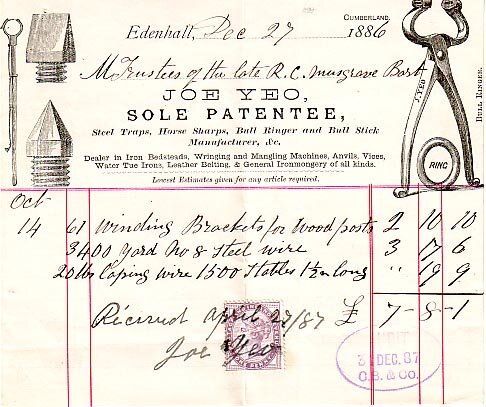 CUMBERLAND.
Edenhall, Dec 27 1886
M Trustees of the late R. C. Musgrave Bart
JOE YEO,
SOLE PATENTEE,
Steel Traps, Horse Sharps, Bull Ringer and Bull Stick
Manufacturer, &c.
Dealer in Iron Bedsteads, Wringing and Mangling Machines, Anvils, Vices,
Water Tue Irons, Leather Belting, & General Ironmongery of all kinds.
Lowest Estimates given for any article required.
J. YEO
RING
BULL RINGER.
Oct
14 61 Winding Brackets for Wood posts 2 10 10
3400 Yard No 8 Steel wire 3 17 6
20 lbs Coping wire 1500 Stables 1½ in long " 19 9
£ 7-8-1
Received April 27/87
Joe Yeo
31 DEC. 87
C.B. & CO.